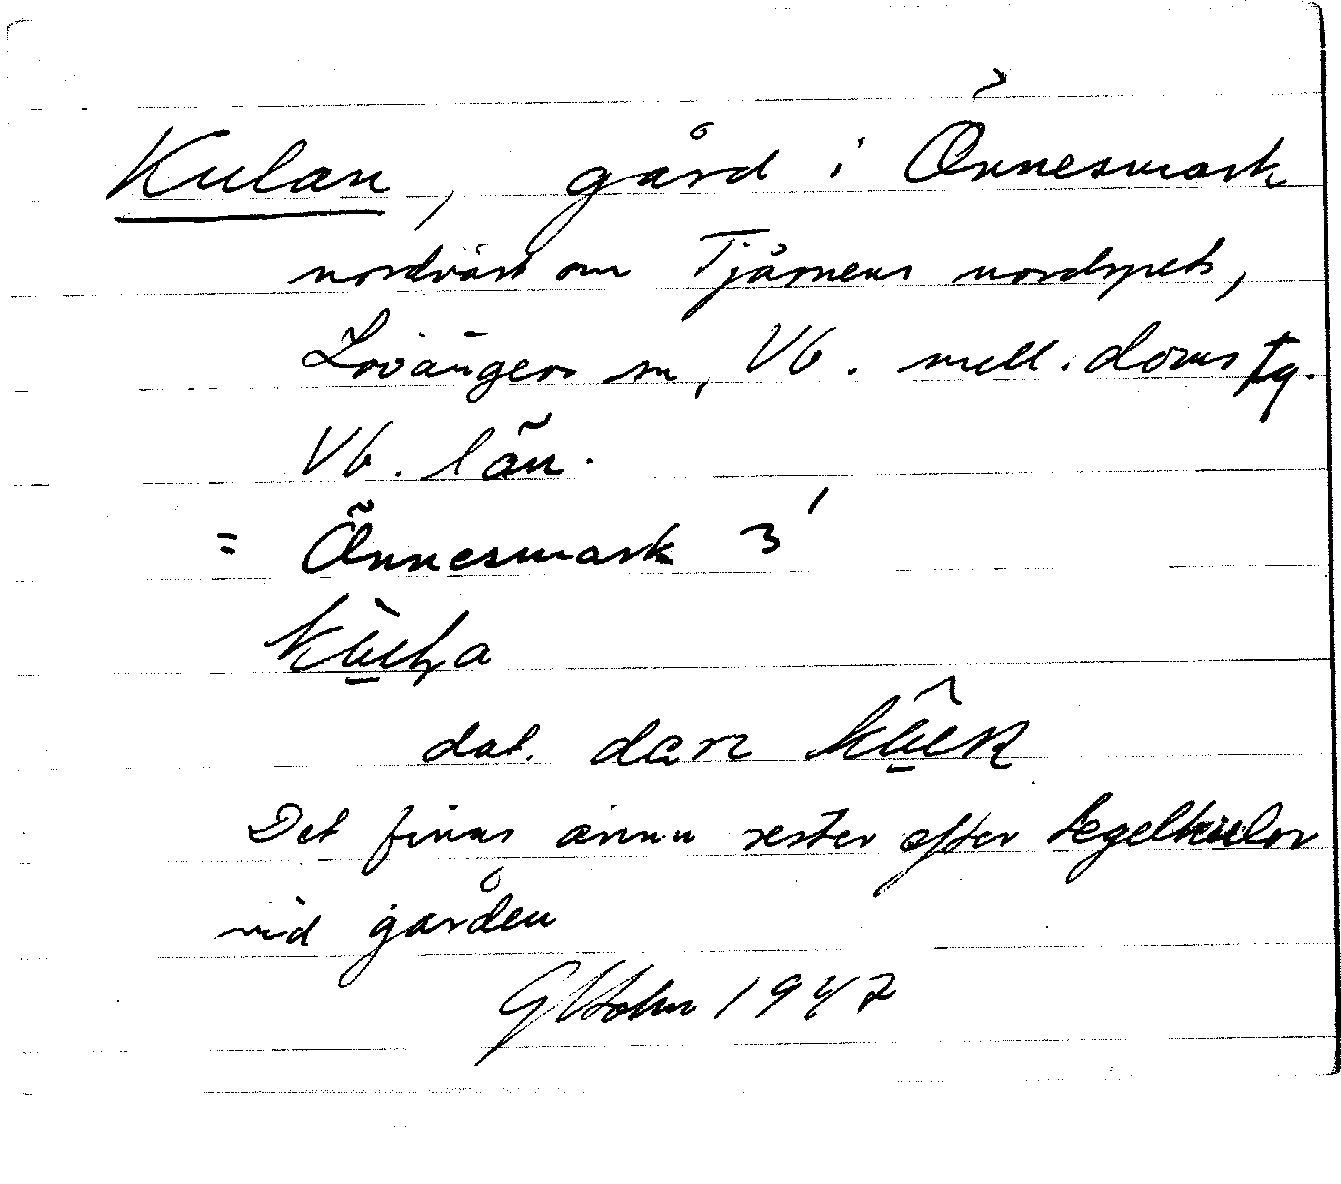 Kulan, gård i Önnesmark
nordväst om Tjärnens nordspets,
Lövångers sn, Vb. mell. doms tg.
Vb. län.
= Önnesmark 3
dat. dan
Det finns ännu rester efter tegelkulor
vid gården
GHolm 1947